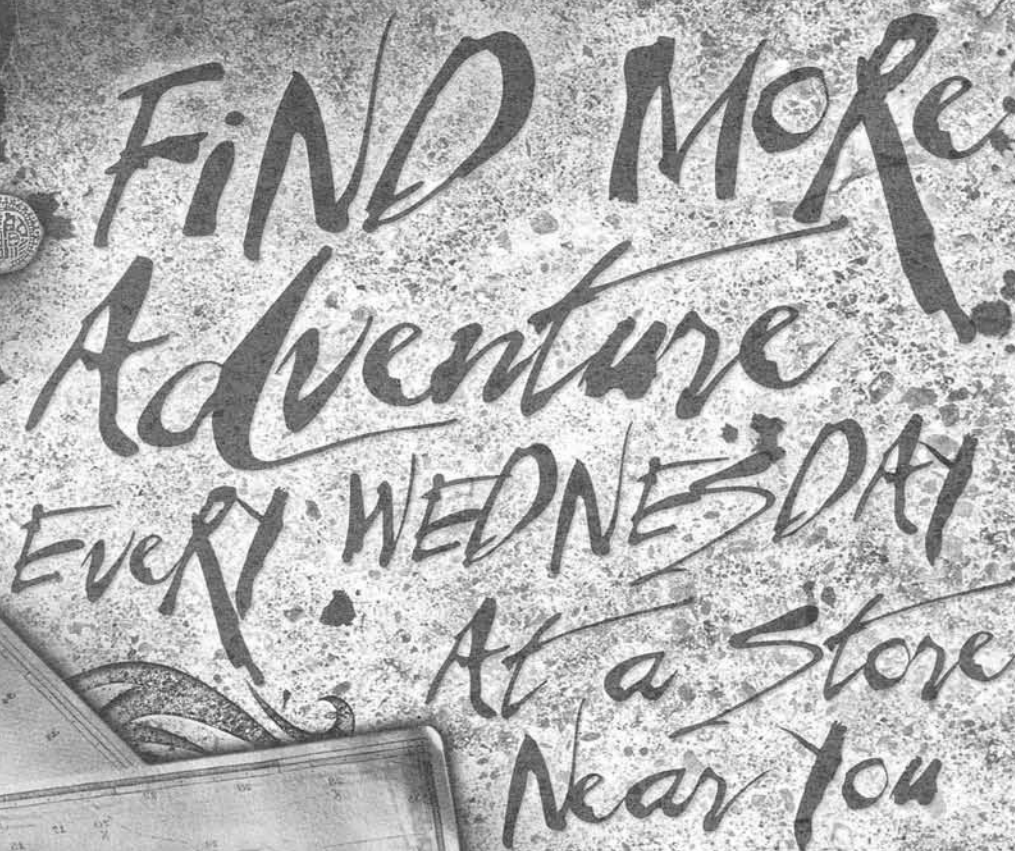 FiND MoRe
Adventure
EveRY WEDNESDAY
At a Store
Near You